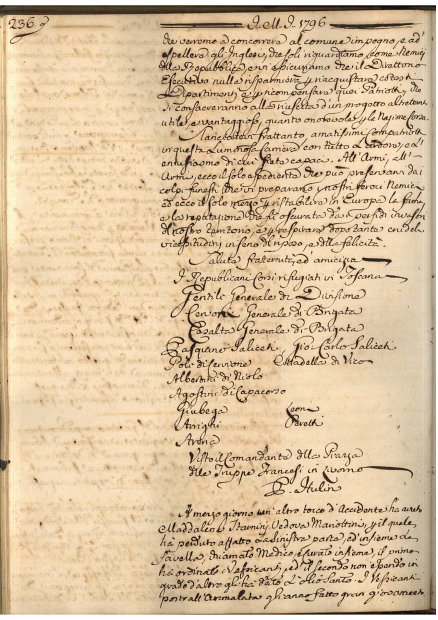 236
J. M. J. 1796
che verremo a concorrere al comune impegno, e ad
espellere gli Inglesi, che soli riguardiamo come Nemici
della Repubblica, vi assicuriamo che il Direttorio
Esecutivo nulla risparmierà per riacquistare cotesti
Dipartimenti, e per ricompensare quei Patrioti, che
si consacreranno alla riuscita d'un progetto altrettanto
utile, e vantaggioso, quanto onorevole per la Nazione Corsa.
frattanto, amatissimi Compatrioti
in questa luminosa carriera con tutto l'ardore, e l'
entusiasmo di cui siete capaci. All'Armi, all'
Armi, ecco il solo espediente che può preservarvi dai
colpi funesti che vi preparano i nostri feroci Nemici,
ed ecco il solo mezzo per ristabilire in Europa la fama,
e la reputazione che fu oscurata da perfidi invasori
del nostro territorio, e per respirare dopo tante crudeli
vicissitudini in seno del riposo, e della felicità.
Salute, fraternità, ed amicizia
I Repubblicani Corsi rifugiati in Toscana
Gentile Generale di Divisione
Cervoni Generale di Brigata
Casalta Generale di Brigata
Pasquale Saliceti Gio: Carlo Saliceti
Poli di Cervione Cittadella di Vico
Albertini di Niolo
Agostini di Capacorso
Giubega Leoni
Arrighi Peretti
Arena
Visto il Comandante della Piazza
delle Truppe Francesi in Livorno
A mezzo giorno un altro tocco d'Accidente ha avuto
Maddalena Vedova Mariottini, per il quale
ha perduto affatto la sinistra parte, ed insieme la
favella, chiamato Medico, e Curato insieme, il primo
ha ordinato i Vescicanti, ed il secondo non essendo in
grado d'altro gli ha dato l'olio Santo. I Vescicanti
portati all'Ammalata gli hanno fatto gran giovamento